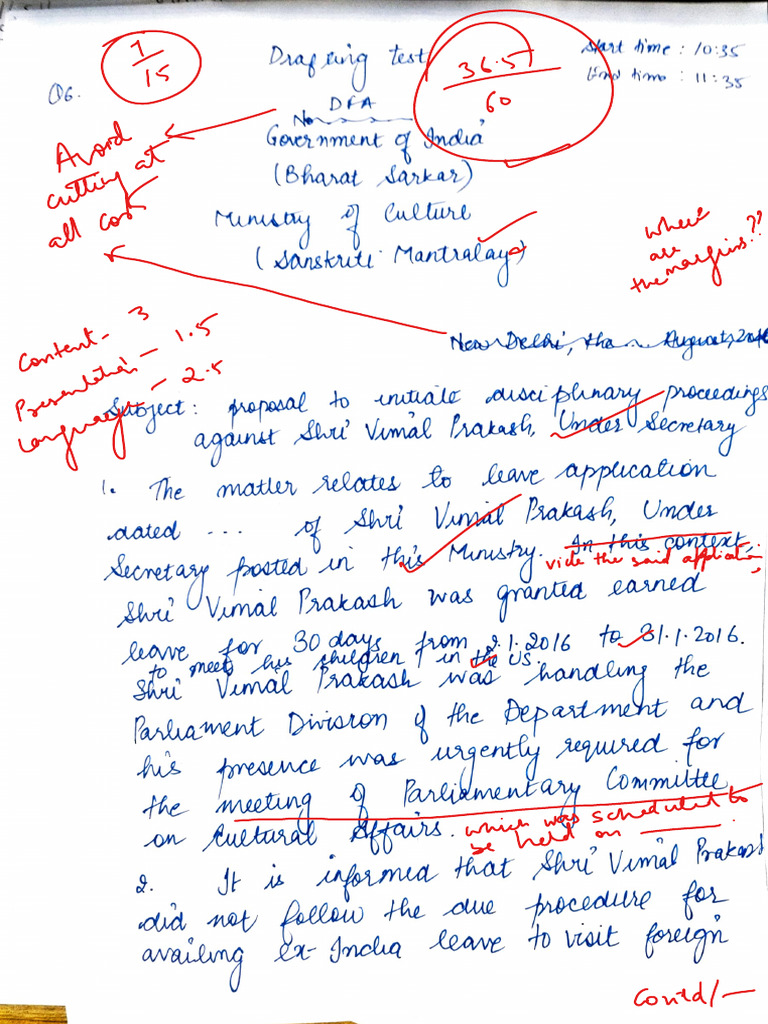 Drafting test
Start time : 10:35
End time : 11:35
Q6.
7/15
36.5/60
DFA
No
Government of India
(Bharat Sarkar)
Ministry of Culture
(Sanskriti Mantralaya)
Avoid
cutting at
all cost
Where
are
the margins??
New Delhi, the ... August, 2016
Content - 3
Presentation - 1.5
Language - 2.5
Subject: proposal to initiate disciplinary proceedings
against Shri Vimal Prakash, Under Secretary
1. The matter relates to leave application
dated ... of Shri Vimal Prakash, Under
Secretary posted in this Ministry. In this context,
vide the said application,
Shri Vimal Prakash was granted earned
leave for 30 days from 2.1.2016 to 31.1.2016.
to meet his children in the US.
Shri Vimal Prakash was handling the
Parliament Division of the Department and
his presence was urgently required for
the meeting of Parliamentary Committee
on Cultural Affairs. which was scheduled to
be held on ______.
2. It is informed that Shri Vimal Prakash
did not follow the due procedure for
availing ex-India leave to visit foreign
Contd/-